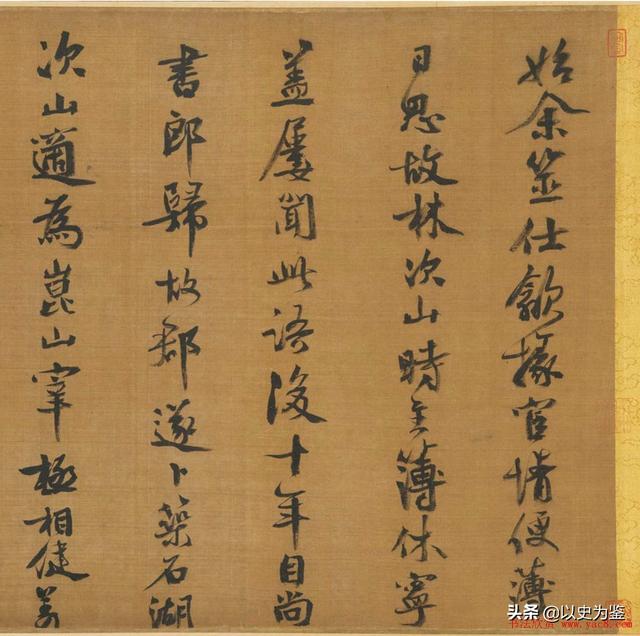 始余筮仕歙掾宦情便薄
日思故林次山時主薄休寧
盖屢聞此語後十年自尚
書郎歸故郡遂卜築石湖
次山適為崑山宰極相健羡
头条 @以史为鉴
书法欣赏 www.yac8.com